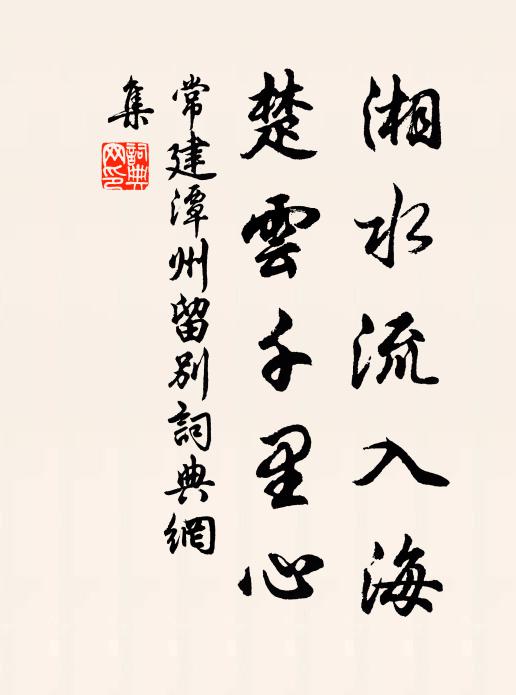 湘水流入海
楚雲千里心
常建潭州留别詞典網
集
詞典網印